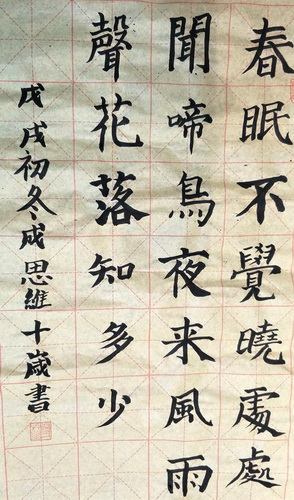 春眠不覺曉處處
聞啼鳥夜来風雨
聲花落知多少
戊戌初冬成思維十歲書